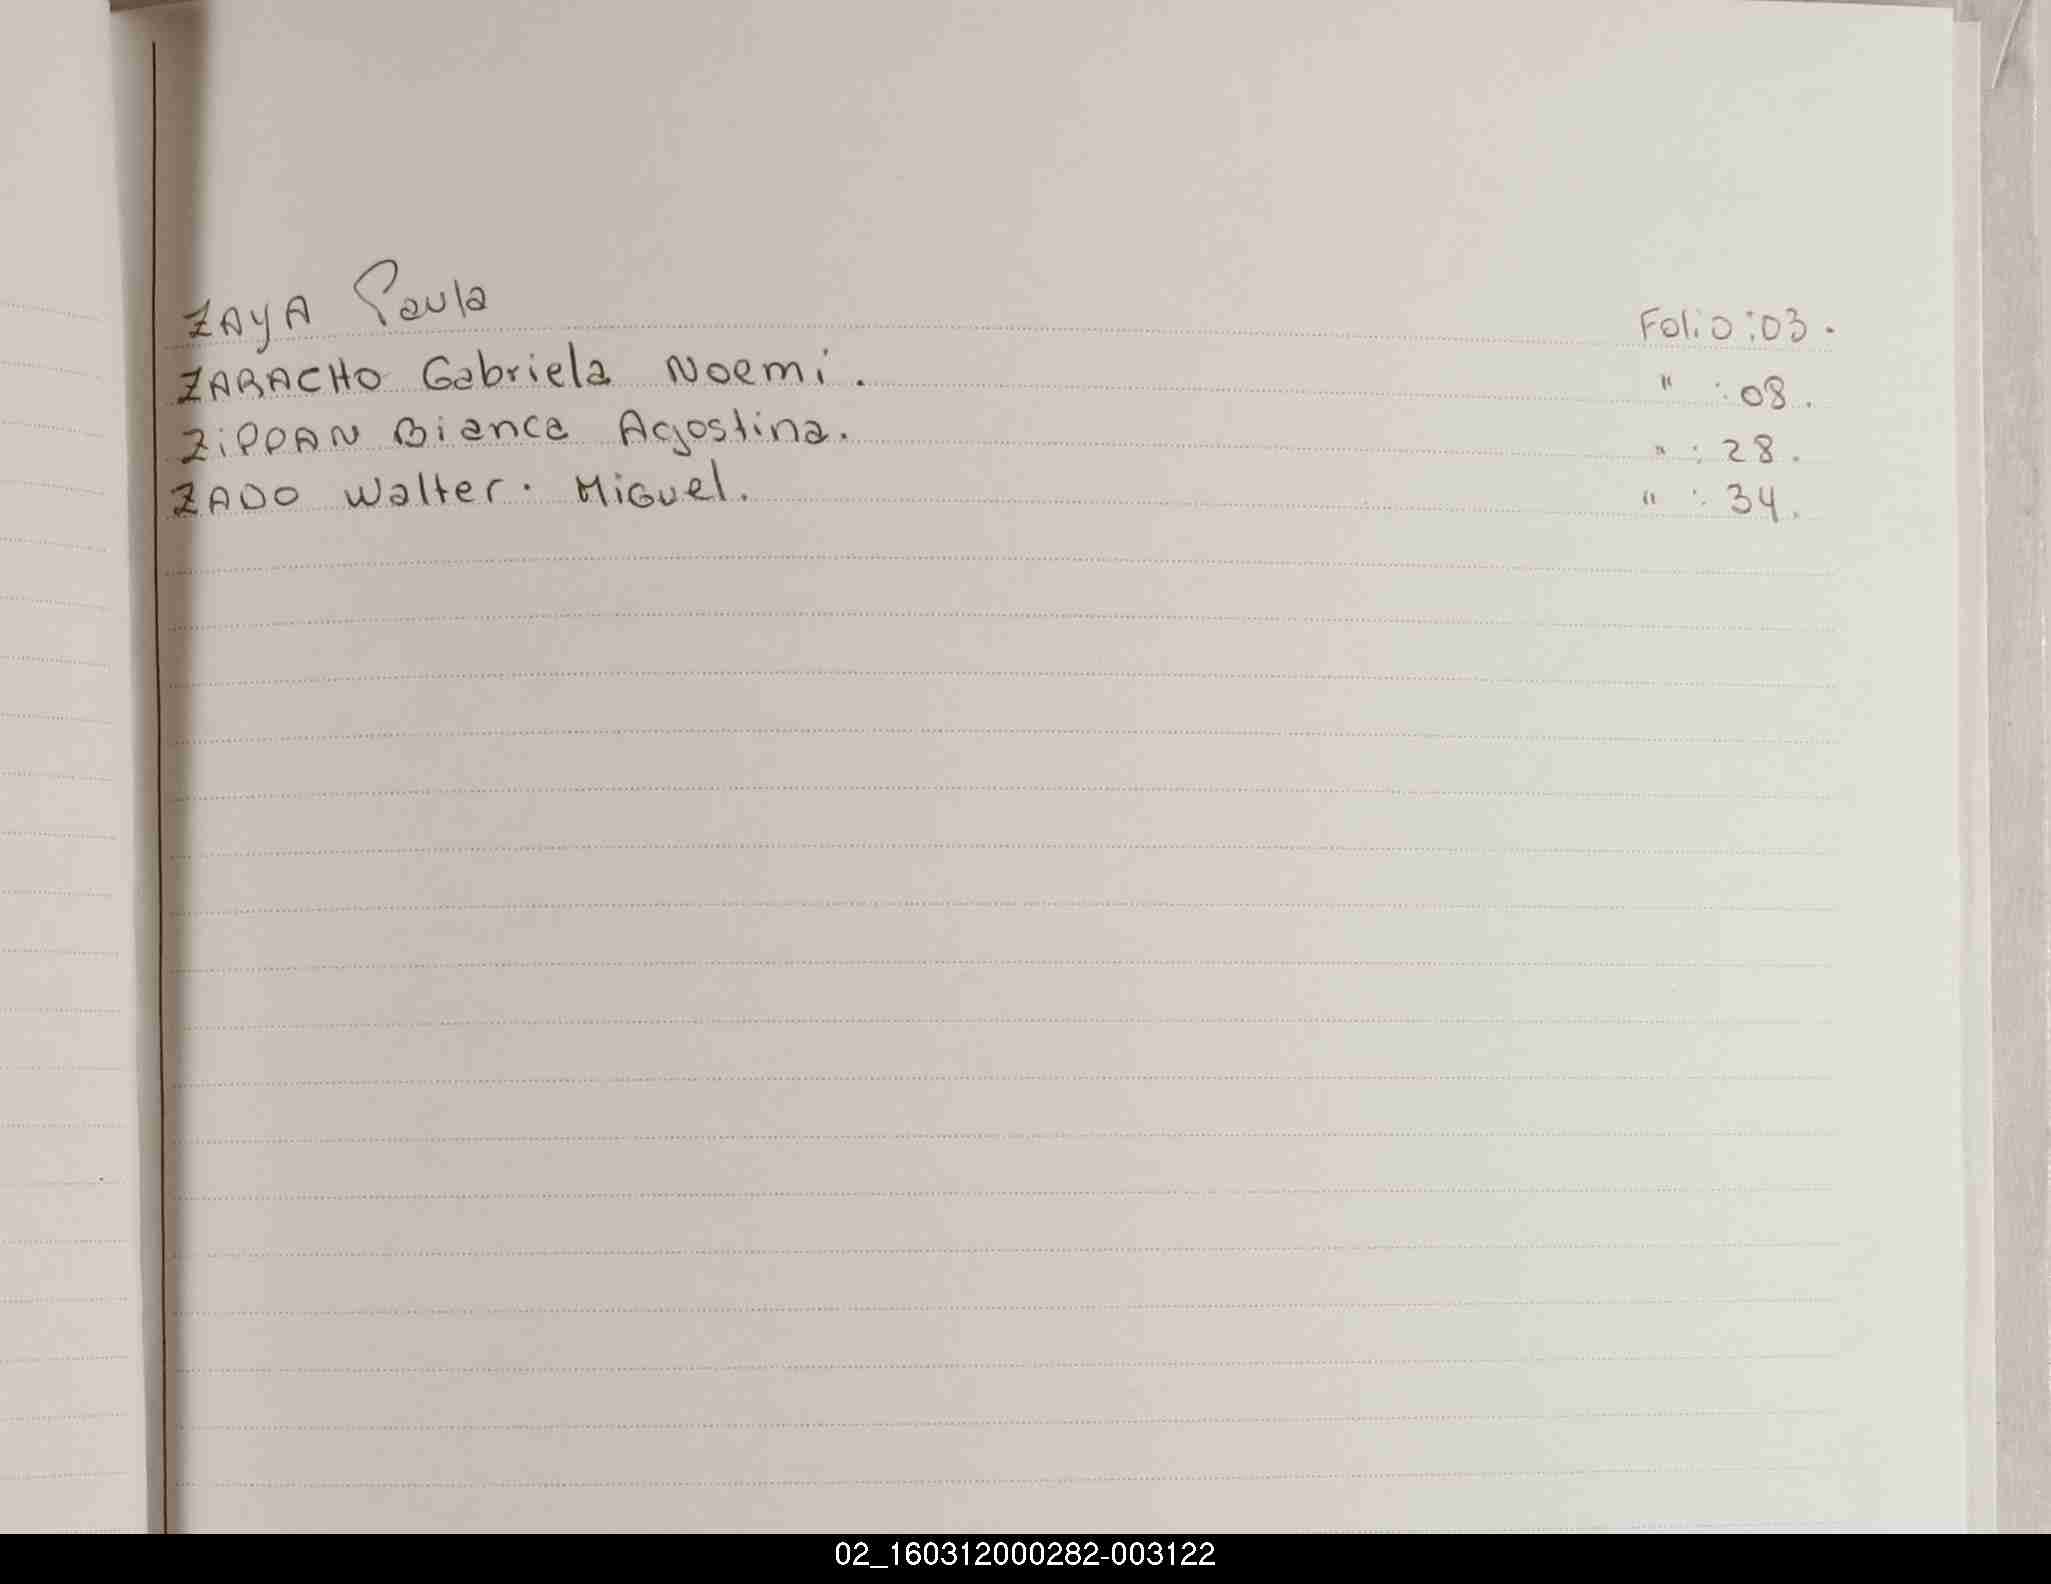 ZAYA Paula Folio:03.
ZARACHO Gabriela Noemi. " :08.
ZiPPAN Bianca Agostina. " : 28.
ZADO Walter. Miguel. " : 34.
02_160312000282-003122